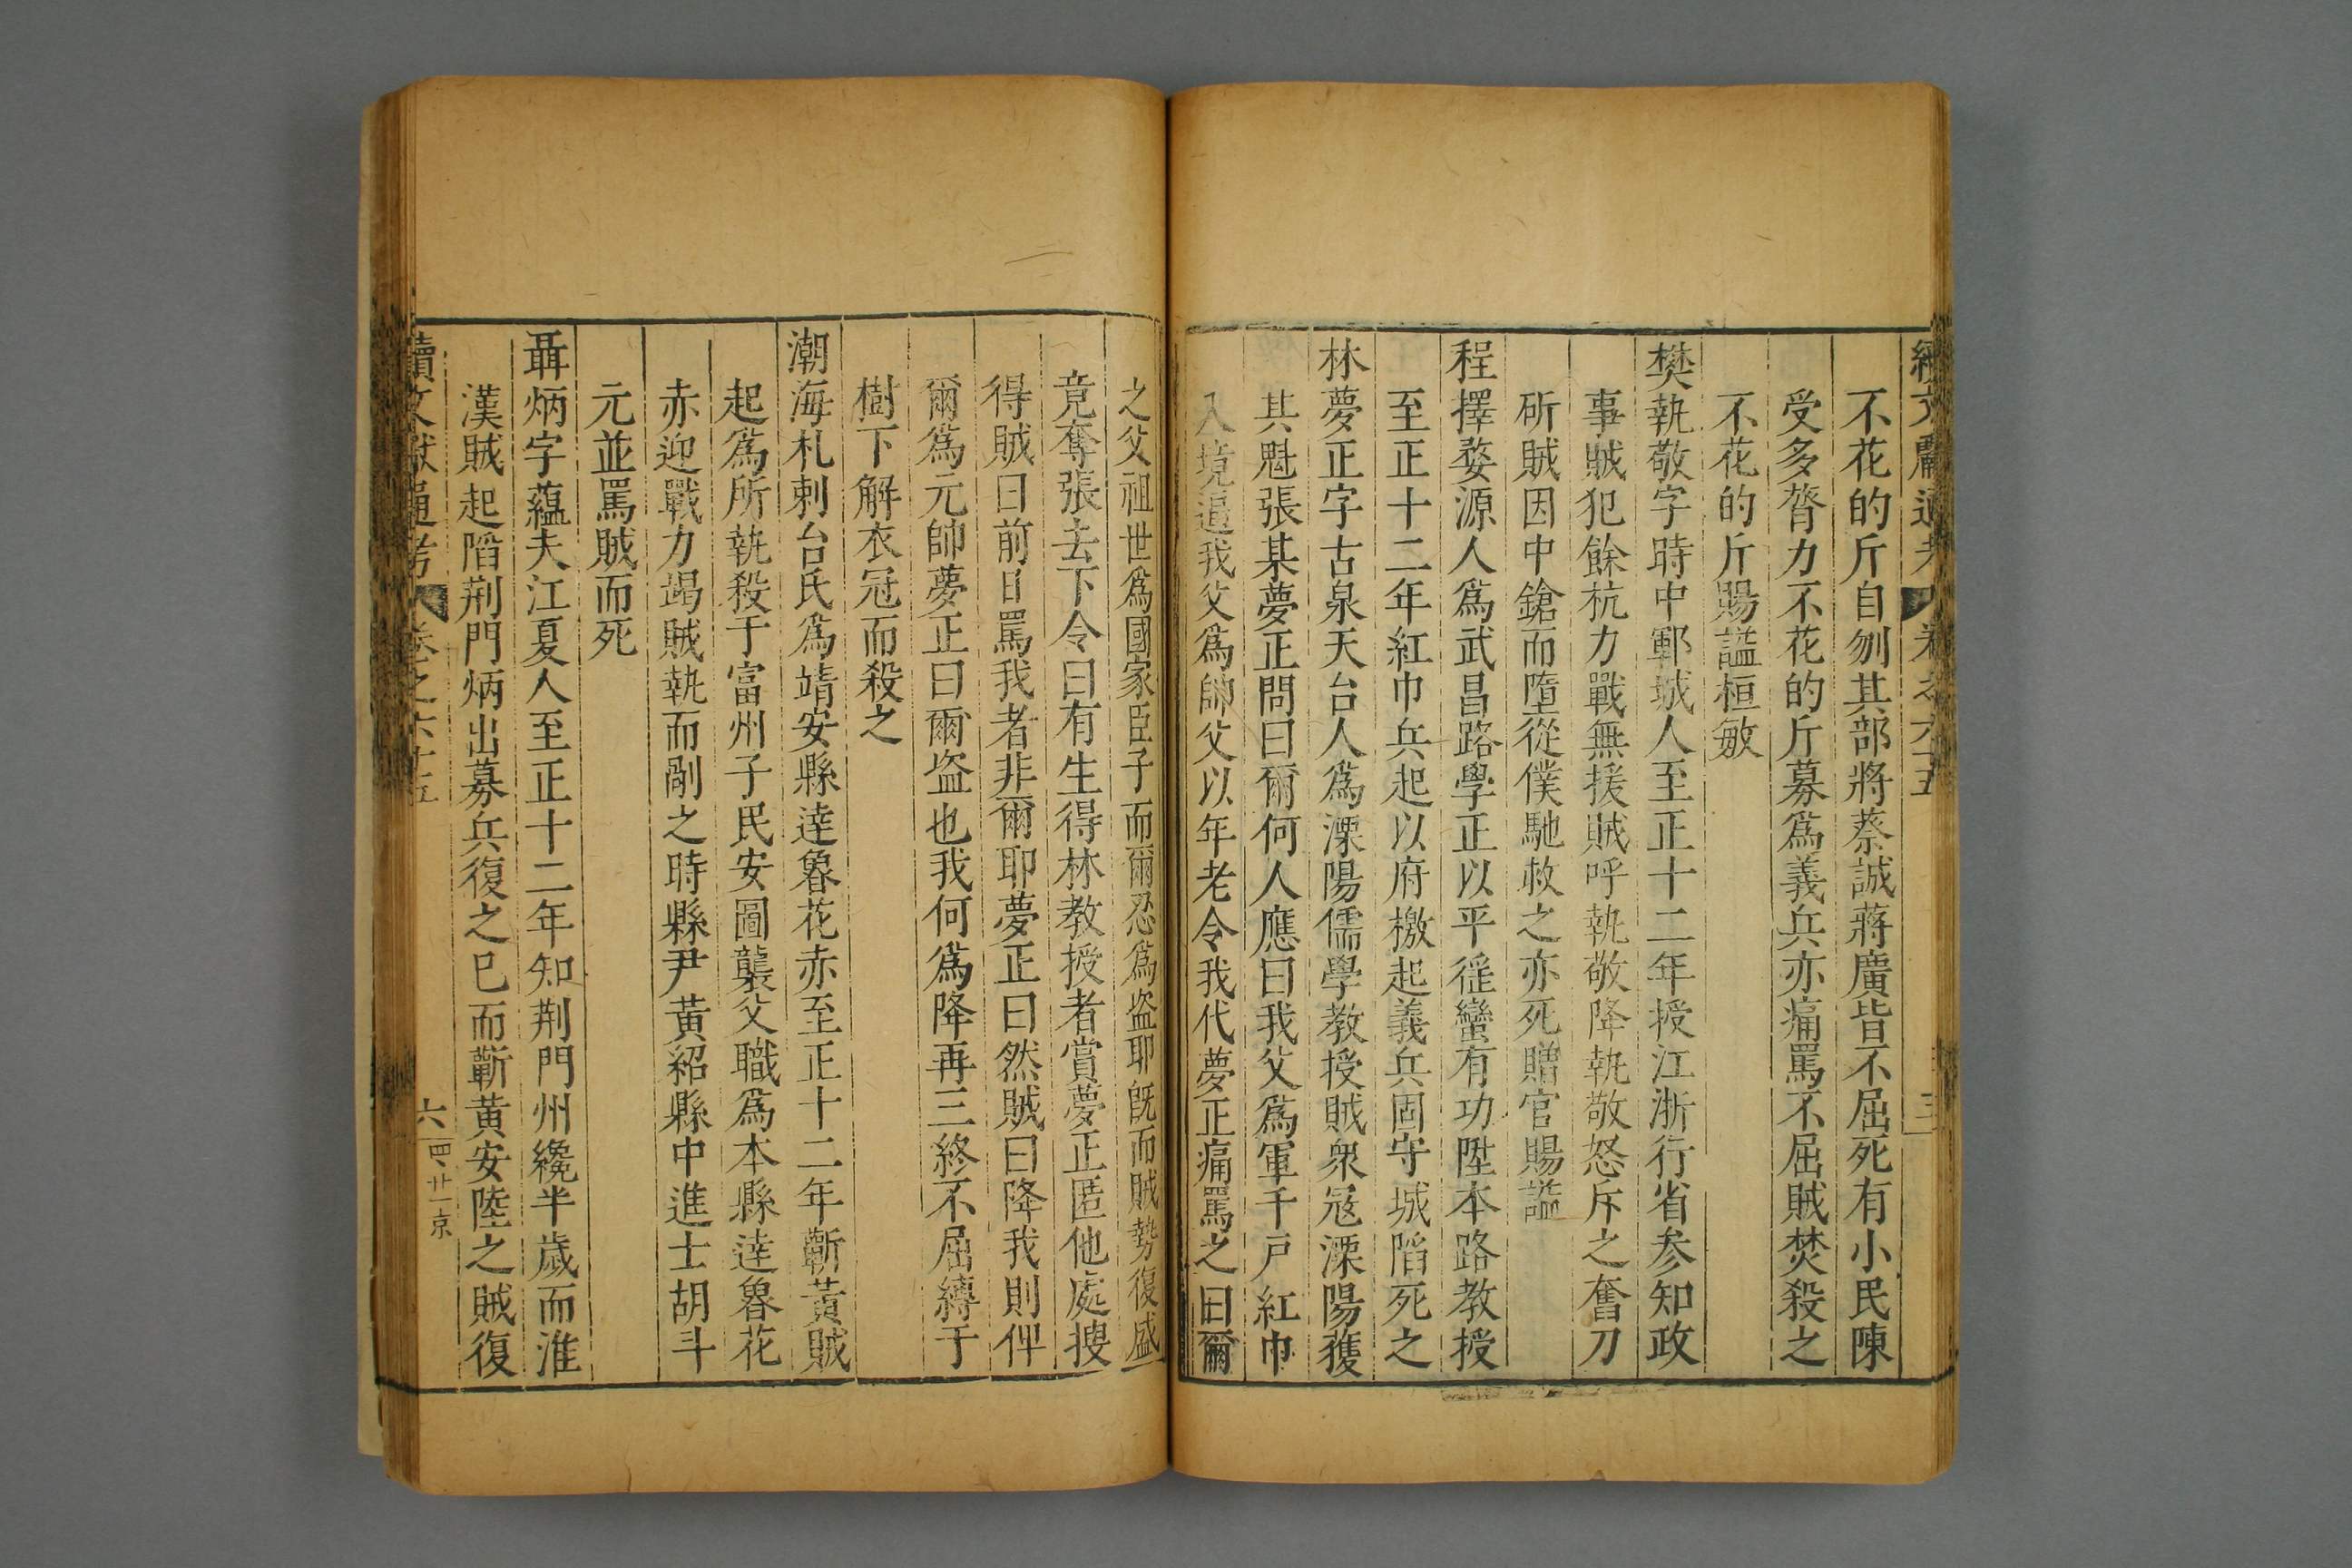 續文獻通考 卷之六十五
不花的斤自刎其部將蔡誠蔣廣皆不屈死有小民陳
受多膂力不花的斤募爲義兵亦痛罵不屈賊焚殺之
不花的斤賜謚桓敏
樊執敬字時中鄆城人至正十二年授江浙行省參知政
事賊犯餘杭力戰無援賊呼執敬降執敬怒斥之奮刀
斫賊因中鎗而墮從僕馳救之亦死贈官賜謚
程擇婺源人爲武昌路學正以平徭蠻有功陞本路教授
至正十二年紅巾兵起以府檄起義兵固守城陷死之
林夢正字古泉天台人爲溧陽儒學教授賊衆冦溧陽獲
其魁張某夢正問曰爾何人應曰我父爲軍千戸紅巾
入境逼我父爲帥父以年老令我代夢正痛罵之曰爾
之父祖世爲國家臣子而爾忍爲盗耶旣而賊勢復盛
竟奪張去下令曰有生得林教授者賞夢正匿他處搜
得賊曰前日罵我者非爾耶夢正曰然賊曰降我則俾
爾爲元帥夢正曰爾盗也我何爲降再三終不屈縛于
樹下解衣冠而殺之
潮海札剌台氏爲靖安縣達魯花赤至正十二年蘄黄賊
起爲所執殺于富州子民安圖襲父職爲本縣達魯花
赤迎戰力竭賊執而剮之時縣尹黄紹縣中進士胡斗
元並罵賊而死
聶炳字藴夫江夏人至正十二年知荆門州纔半歲而淮
漢賊起陷荆門炳出募兵復之已而蘄黄安陸之賊復
續文獻通考 卷之六十五 六 四 廿一 京